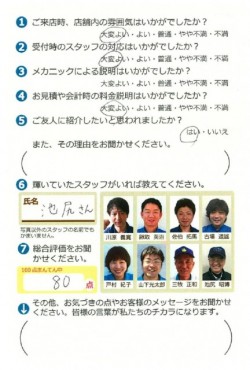 1 ご来店時、店舗内の雰囲気はいかがでしたか?
大変よい・よい・普通・やや不満・不満
2 受付時のスタッフの対応はいかがでしたか?
大変よい・よい・普通・やや不満・不満
3 メカニックによる説明はいかがでしたか?
大変よい・よい・普通・やや不満・不満
4 お見積や会計時の料金説明はいかがでしたか?
大変よい・よい・普通・やや不満・不満
5 ご友人に紹介したいと思われましたか?
はい・いいえ
また、その理由をお聞かせください。
6 輝いていたスタッフがいれば教えてください。
氏名
池尻さん
写真以外のスタッフの名前でも
かまいません。
7 総合評価をお聞
かせください。
100点まんてん中
80 点
古場 道誠
戸村 紀子
山下 光太郎
三牧 正和
池尻 昭博
その他、お気づきの点やお客様のメッセージをお聞かせ
ください。皆様の言葉が私たちのチカラになります。